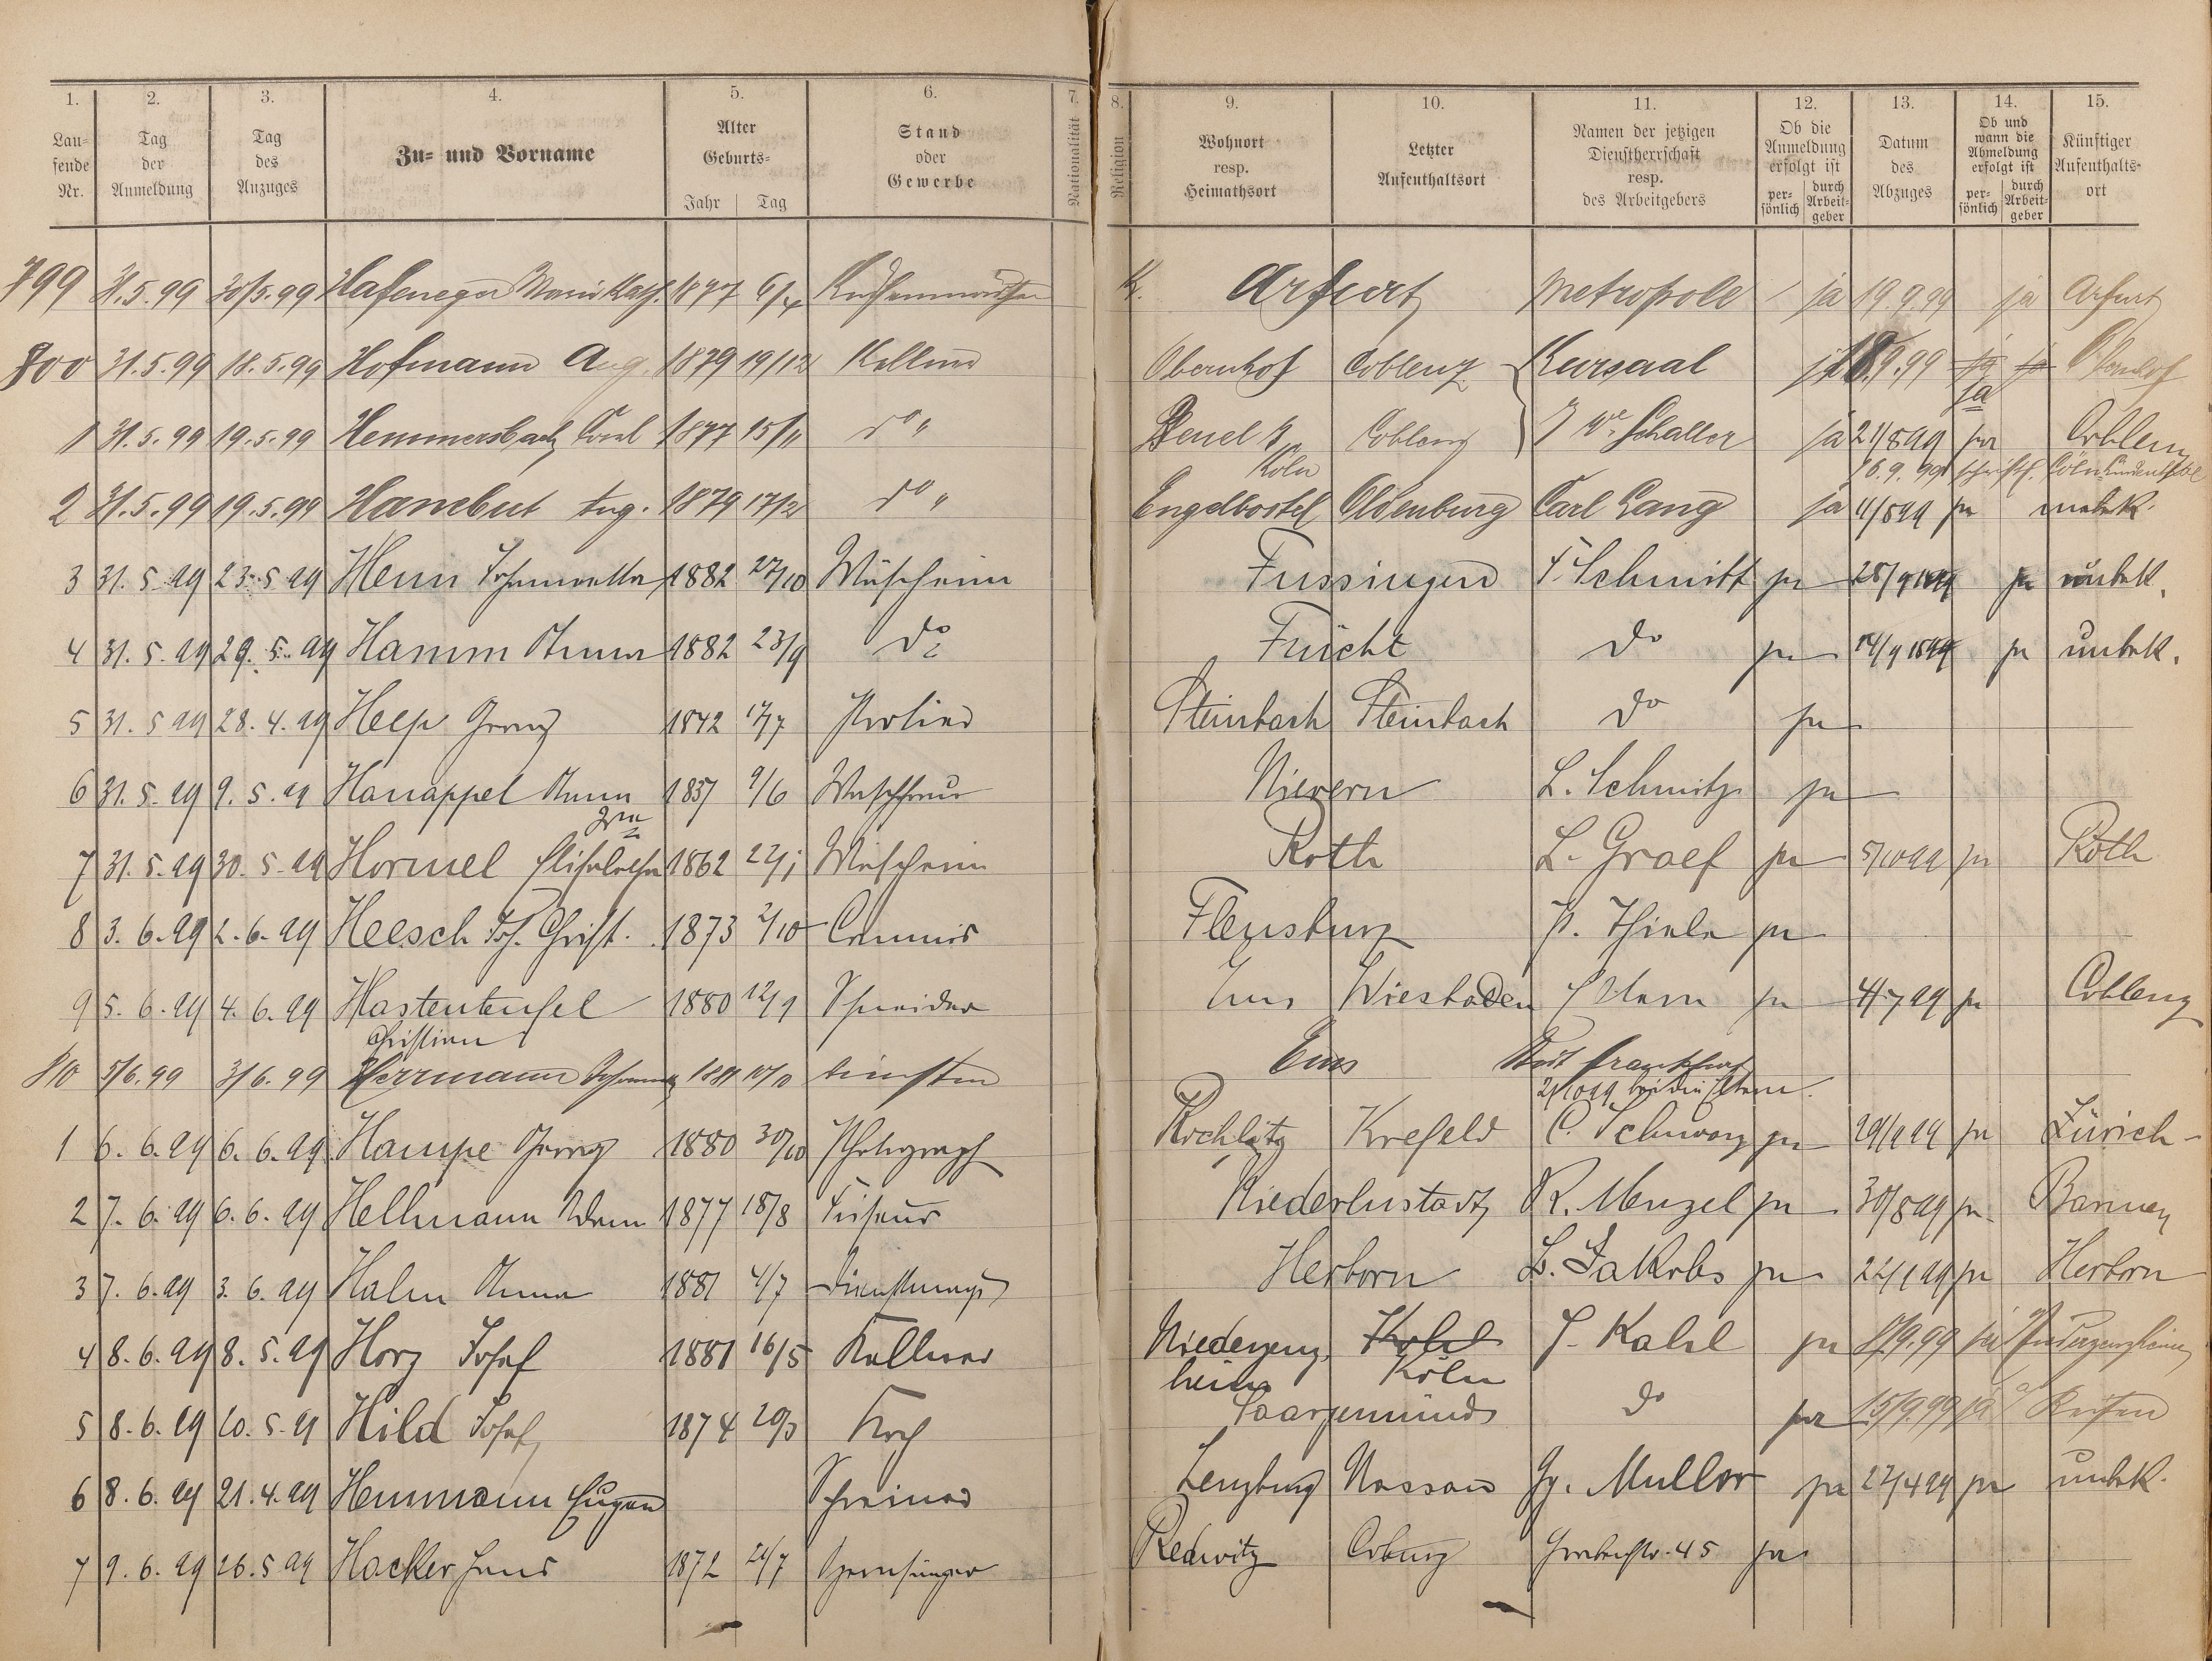 1. 2. 3. 4. 5. 6. 7. 8. 9. 10. 11. 12. 13. 14. 15.
Lau-
fende
Nr.
Tag
der
Anmeldung
Tag
des
Anzuges
Zu- und Vorname
Alter
Geburts-
Jahr Tag
Stand
oder
Gewerbe
Nationalität
Religion
Wohnort
resp.
Heimathsort
Letzter
Aufenthaltsort
Namen der jetzigen
Dienstherrschaft
resp.
des Arbeitgebers
Ob die
Anmeldung
erfolgt ist
per-
sönlich
durch
Arbeit-
geber
Datum
des
Abzuges
Ob und
wann die
Abmeldung
erfolgt ist
per-
sönlich
durch
Arbeit-
geber
Künftiger
Aufenthalts-
ort
799 31.5.99 30/5.99 Hafeneger 1877 6/4 K. Arfurt Metropole ja 19.9.99 ja Arfurt
800 31.5.99 18.5.99 Hofmann Aug. 1879 19/12 Kellner Obernhof Coblenz Kursaal 18.9.99 ja ja Obernhof
ja
1 31.5.99 19.5.99 Hemmersbach Carl 1877 15/11 do " Beuel Coblenz J Wwe Schaller ja 21/8 99 ja Coblenz
Köln 16.9.99 schriftl. Cöln
2 31.5.99 19.5.99 Hanebut Aug. 1879 17/2 do " Engelbostel Oldenburg Carl Lang ja 11/8 99 ja unbek.
3 31.5.99 23.5.99 Henn 1882 27/10 Wäscherin Fussingen F. Schmitt ja 28/9 1899 ja unbek.
4 31.5.99 29.5.99 Hamm Anna 1882 23/9 do Frücht do ja 14/9 1899 ja unbek.
5 31.5.99 28.4.99 Heep Georg 1842 17/7 Portier Steinbach Steinbach do ja
6 31.5.99 9.5.99 Hanappel Anna 1837 9/6 Waschfrau Nievern L. Schmitz ja
Frau
7 31.5.99 30.5.99 Hormel Elisabetha 1862 22/1 Wäscherin Roth L. Graef ja 5/10 99 ja Roth
8 3.6.99 2.6.99 Heesch Joh. Christ. 1873 2/10 Commis Flensburg P. Thiele ja
9 5.6.99 4.6.99 Hastenteufel 1880 12/1 Schneider Ems Wiesbaden Eltern ja 4/7 99 ja Coblenz
Christian
810 5/6.99 3/6.99 Herrmann 1881 Ems Stadt Frankfurt
2/10 99 bei den Eltern.
1 6.6.99 6.6.99 Hampe Georg 1880 30/10 Photograph Rochlitz Krefeld C. Schwarz ja 29/9 99 ja Zürich
2 7.6.99 6.6.99 Hellmann Adam 1877 18/8 Friseur Niederlustadt R. Menzel ja 30/8 99 ja Barmen
3 7.6.99 3.6.99 Hahn Anna 1881 4/7 Dienstmagd Herborn L. Jakobs ja 22/1 99 ja Herborn
4 8.6.99 8.5.99 Horz Josef 1881 16/5 Kellner Niedergenz- Kohl J. Kahl ja 8/9.99 ja Niedergenzheim
heim Köln
5 8.6.99 10.5.99 Hild Josef 1874 20/3 Koch Saargemünd do ja 15/9.99 ja Reisen
6 8.6.99 21.4.99 Hemmann Eugen Schreiner Lenzburg Nassau Gg. Muller ja 27/4 99 ja unbek.
7 9.6.99 26.5.99 Hacker Hans 1872 21/7 Opernsänger Redwitz Coburg Grabenstr. 45 ja